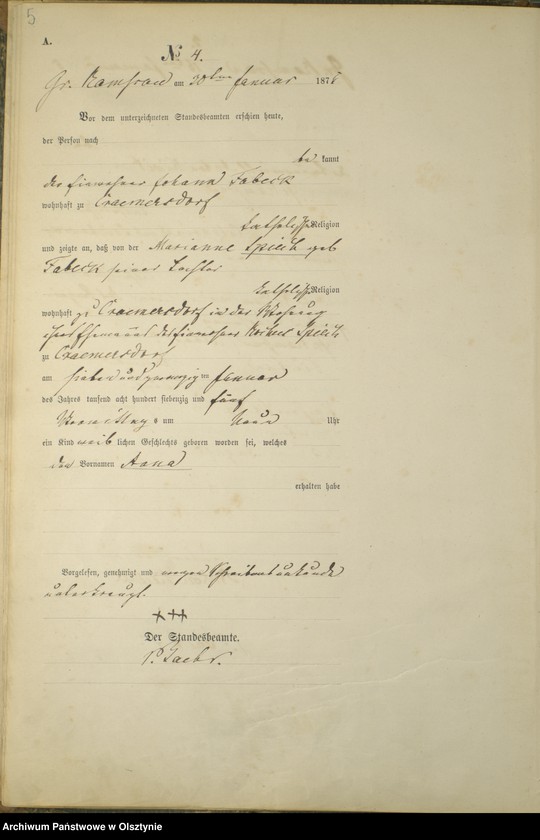 5
A.
No 4.
Gr. Ramsau am 30ten Januar 1875
Vor dem unterzeichneten Standesbeamten erschien heute,
der Person nach
be kannt
der Einwohner Johann Fabeck
wohnhaft zu Craemersdorf
katholischer Religion
und zeigte an, daß von der Marianne Spieth geb
Fabeck seiner Tochter
katholischer Religion
wohnhaft zu Craemersdorf in der Wohnung
ihres Ehemannes des Einwohner Spieth
zu Craemersdorf
am sieben und zwanzigten Januar
des Jahres tausend acht hundert siebenzig und fünf
Vormittags um neun Uhr
ein Kind weib lichen Geschlechts geboren worden sei, welches
den Vornamen Anna
erhalten habe
Vorgelesen, genehmigt und wegen Schreibensunkunde
unterkreuzt.
+++
Der Standesbeamte.
Archiwum Państwowe w Olsztynie